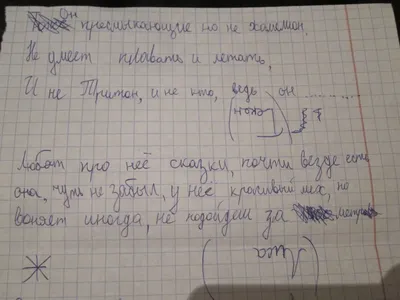 Он
пресмыкающие но не хамелион,
Не умеет плавать и летать,
И не Тритон, и не кто, ведь он ............
(Геккон)
Любят про неё сказки, почти везде есть
она, чуть не забыл, у неё красивый мех, но
воняет иногда, не подойдёш за метр
(Лиса)